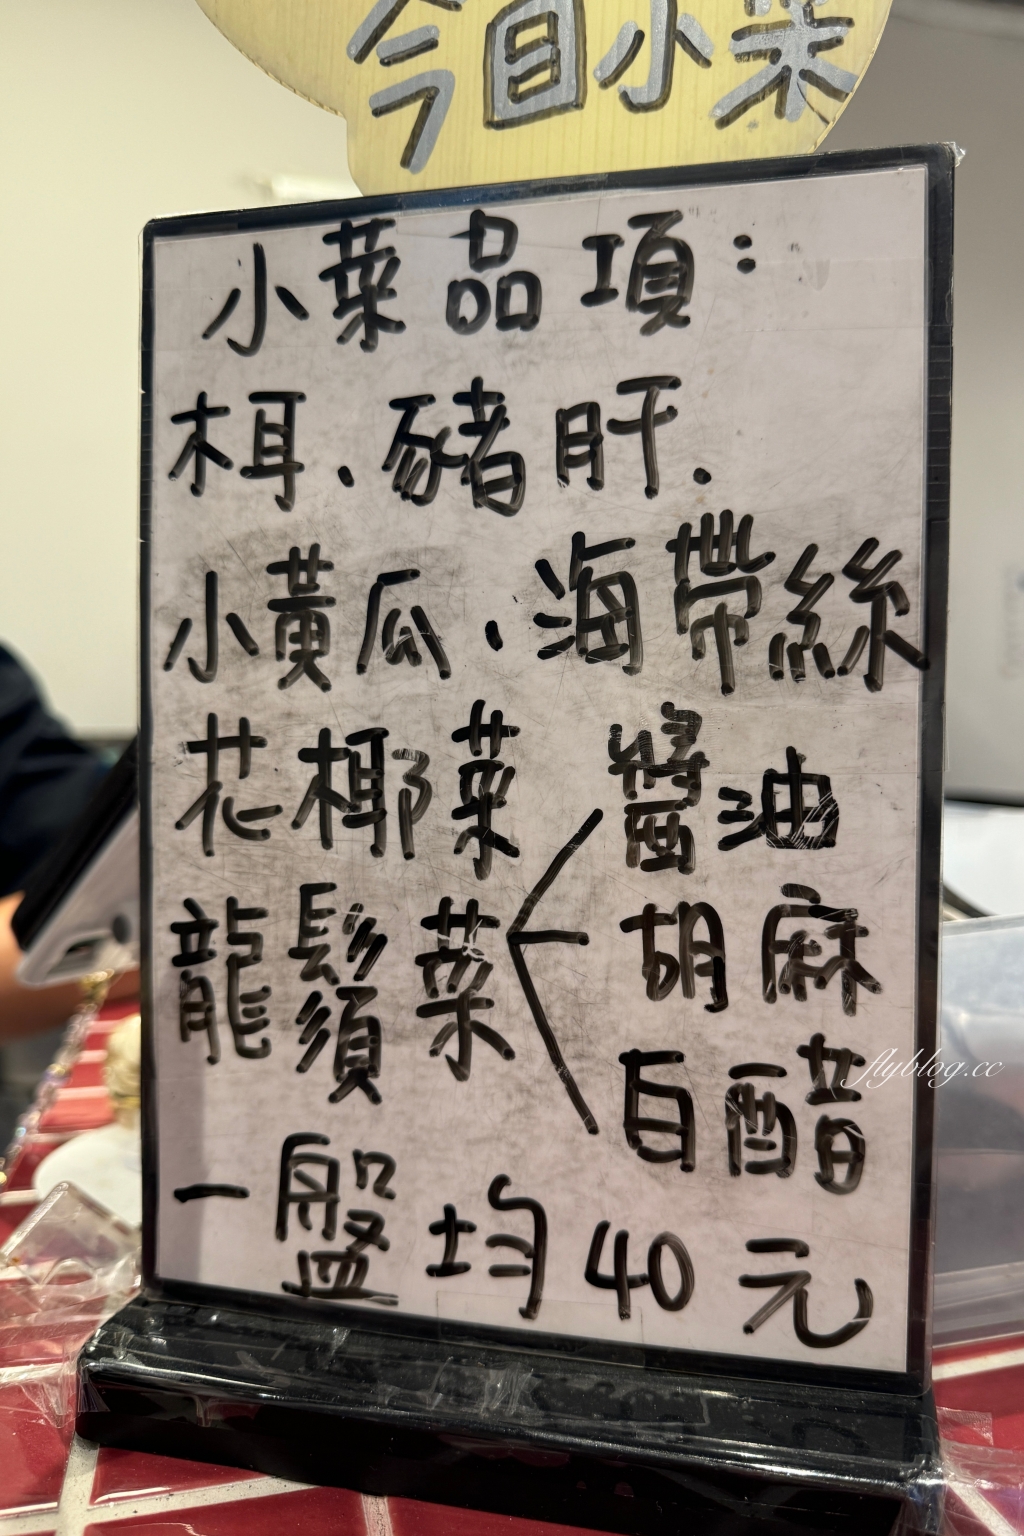 今日小菜
小菜品項：
木耳．豬肝．
小黃瓜．海帶絲
花椰菜
龍鬚菜
醬油
胡麻
百醋
一盤均40元
flyblog.cc